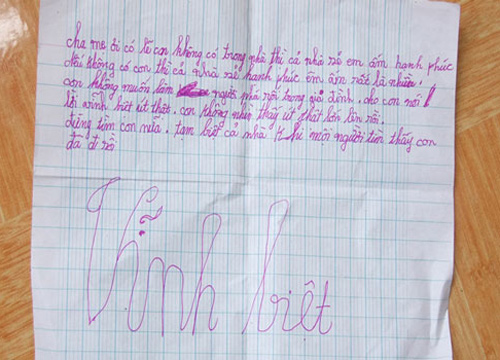 cha mẹ ơi có lẽ con không có trong nhà thì cả nhà rẻ em ấm hạnh phúc
nếu không có con thì cả nhà rẻ hạnh phúc êm ấm rất là nhiều
con không muốn làm người nhà rối trong gia đình. cho con nói
lời vĩnh biệt út thật. con không nhìn thấy út thật lớn lên rồi.
đừng tìm con nữa. tạm biệt cả nhà khi mọi người tìm thấy con
đã đi rồ
Vĩnh biệt